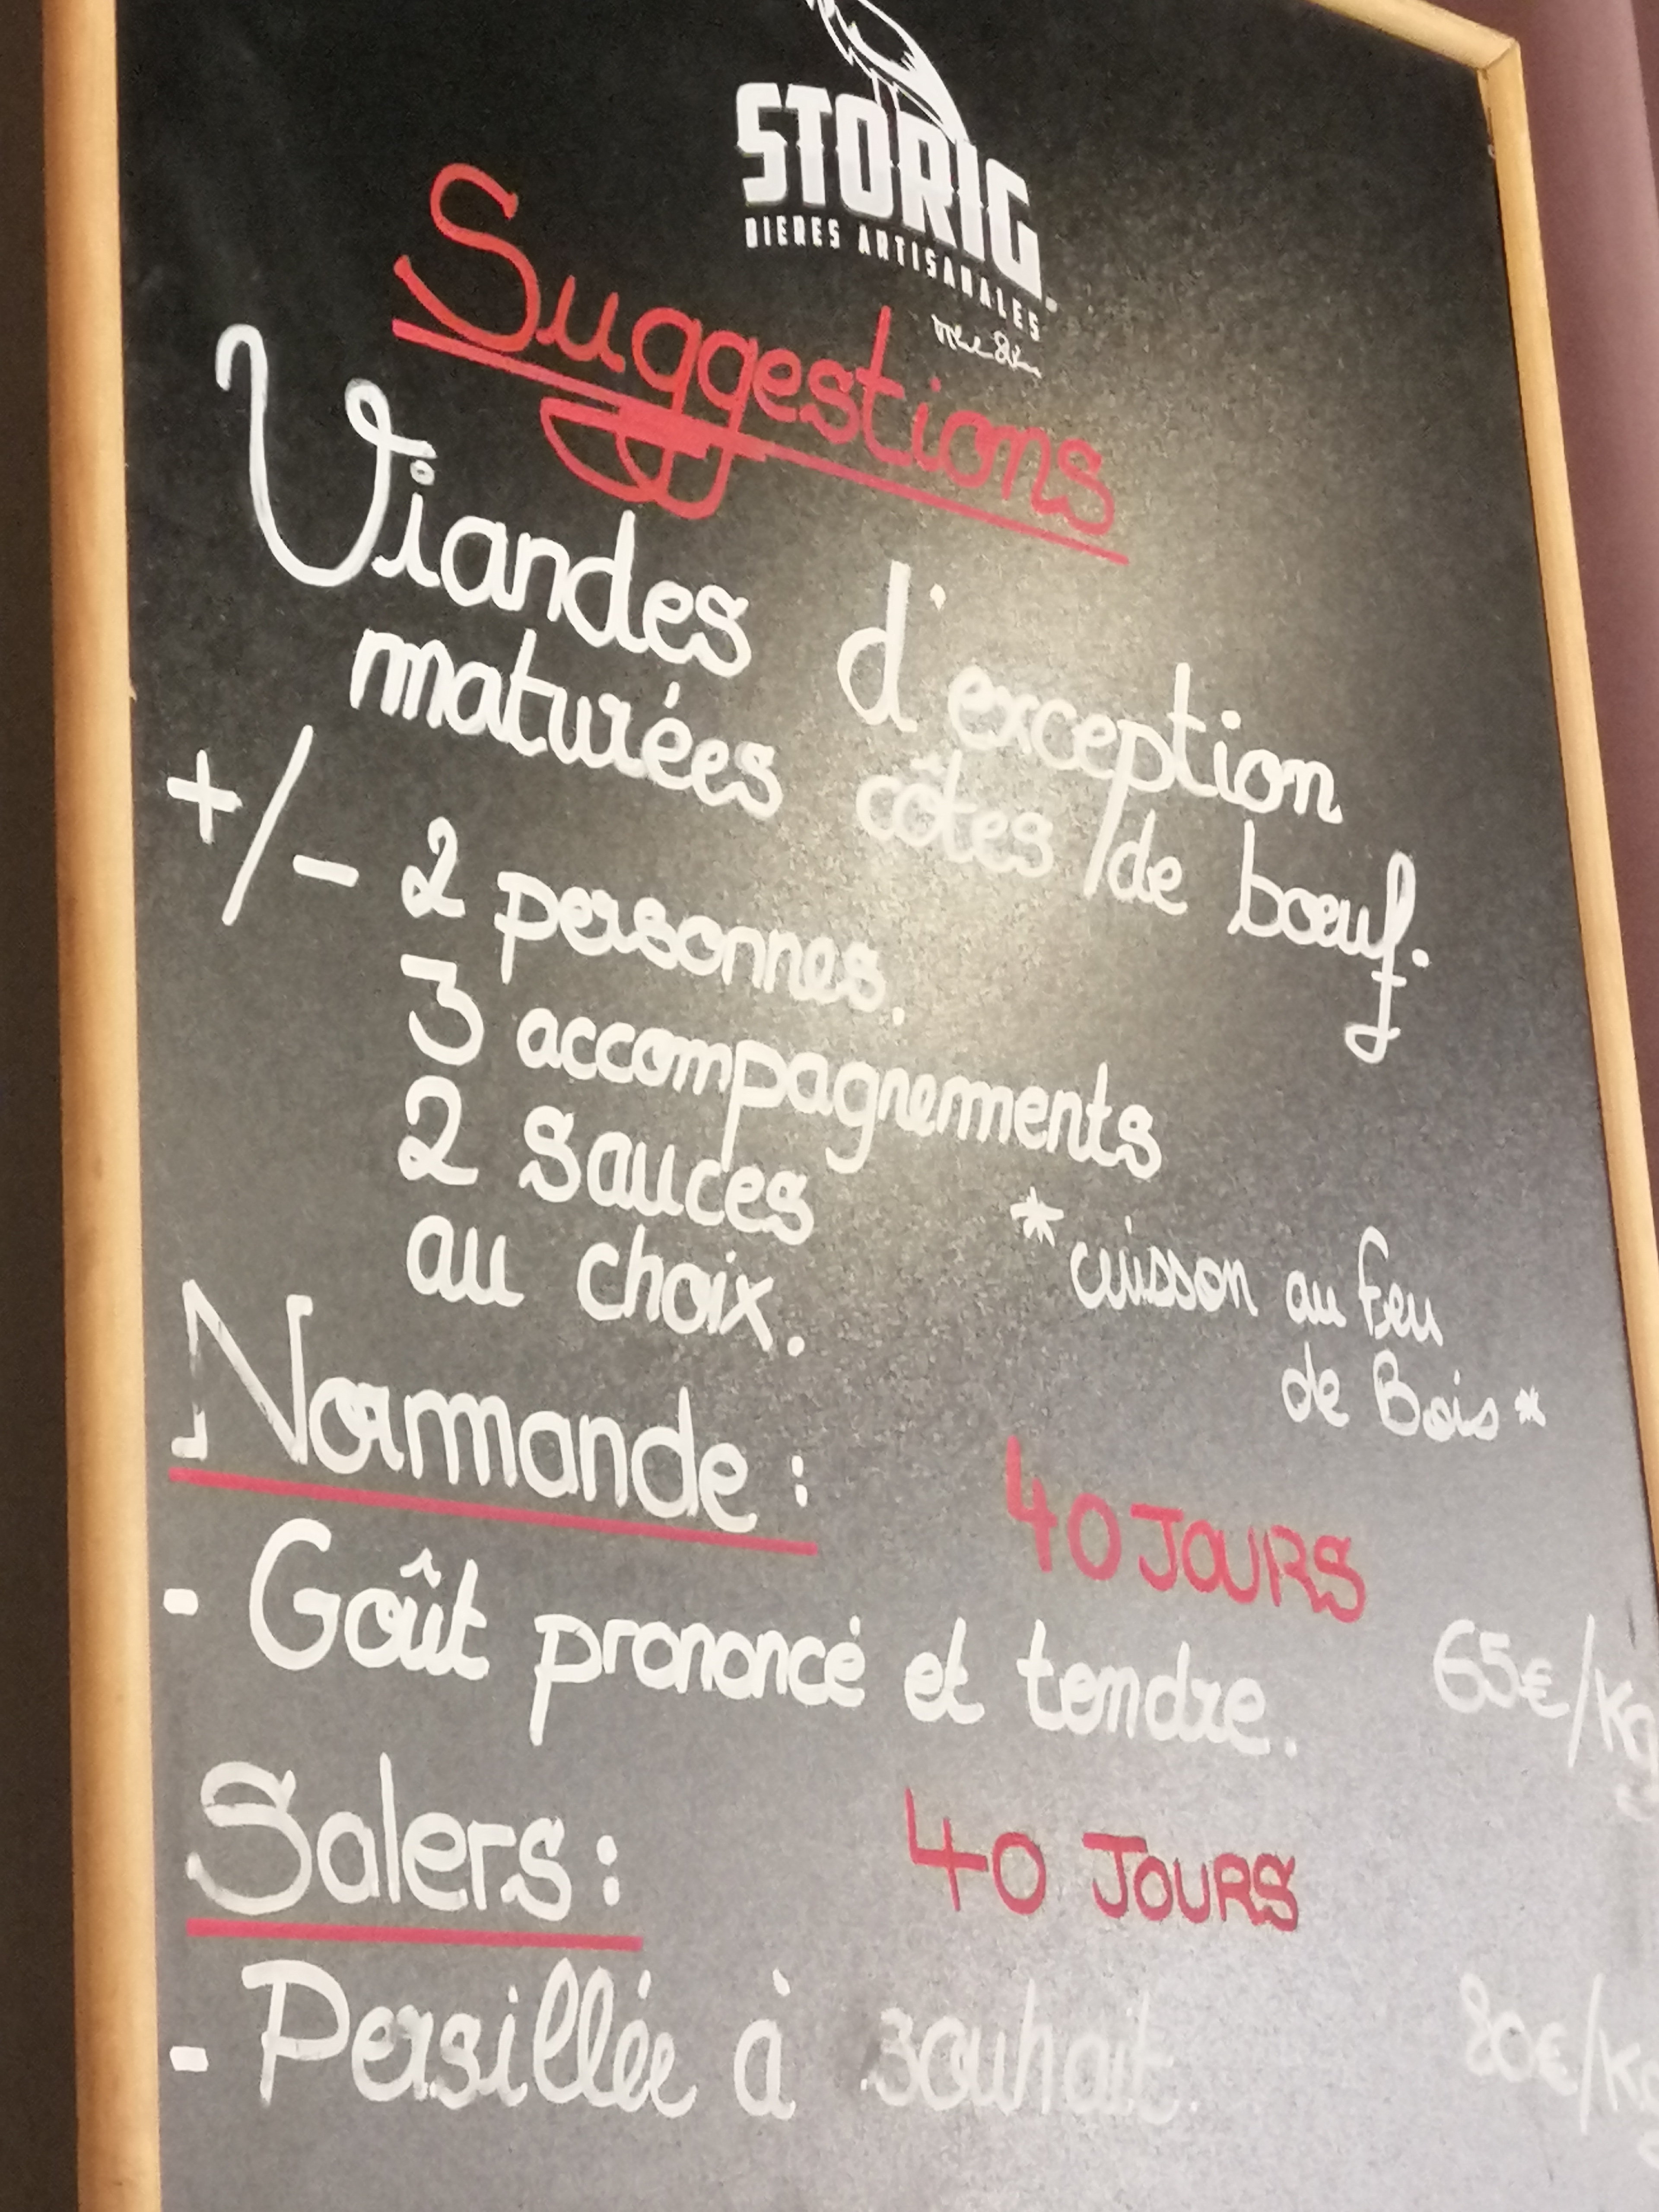 STORIG
BIERES ARTISANALES
Suggestions
Viandes d'exception
maturées côtes /de bœuf.
+/- 2 personnes.
3 accompagnements
2 sauces
au choix.
*cuisson au feu
de Bois*
Normande : 40 JOURS
- Goût prononcé et tendre. 65€/kg
Salers : 40 JOURS
- Persillée à souhait. 80€/kg